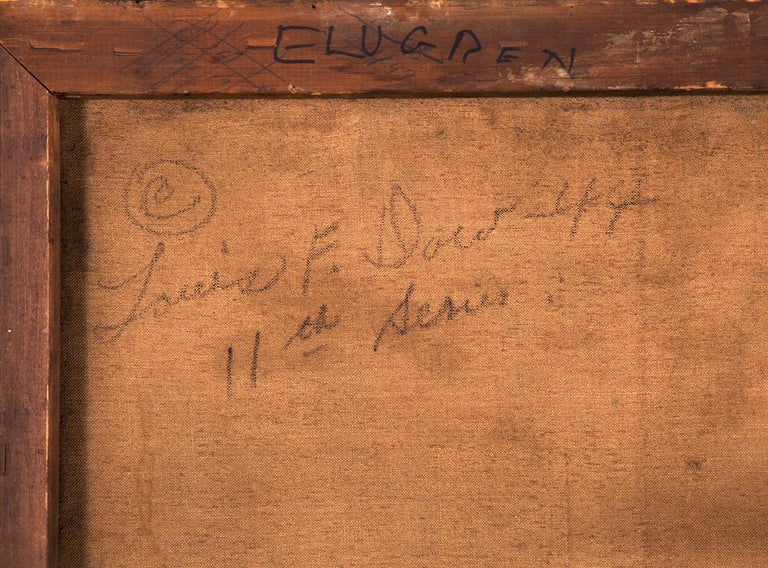 ELUGREN
©
Louis F. Dow - 44
11th Series.